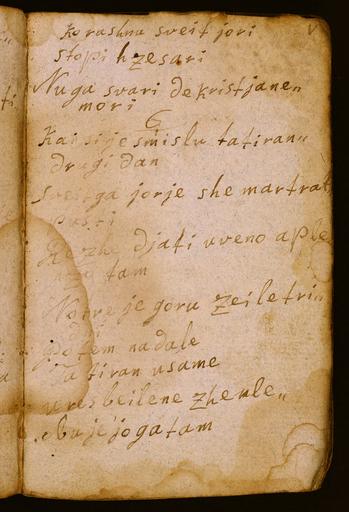 korashnu sveit jori
stopi h zesari
Nuga svari de kristjanen
mori
G
Kai si je smislu tatiranu
drugi dan
sveiga jorje she martrat
pusti
djati uveno aple
tam
Notre je goru zeiletrin
potem nadale
tatiran usame
ures beilene zheule
obuje jogatam